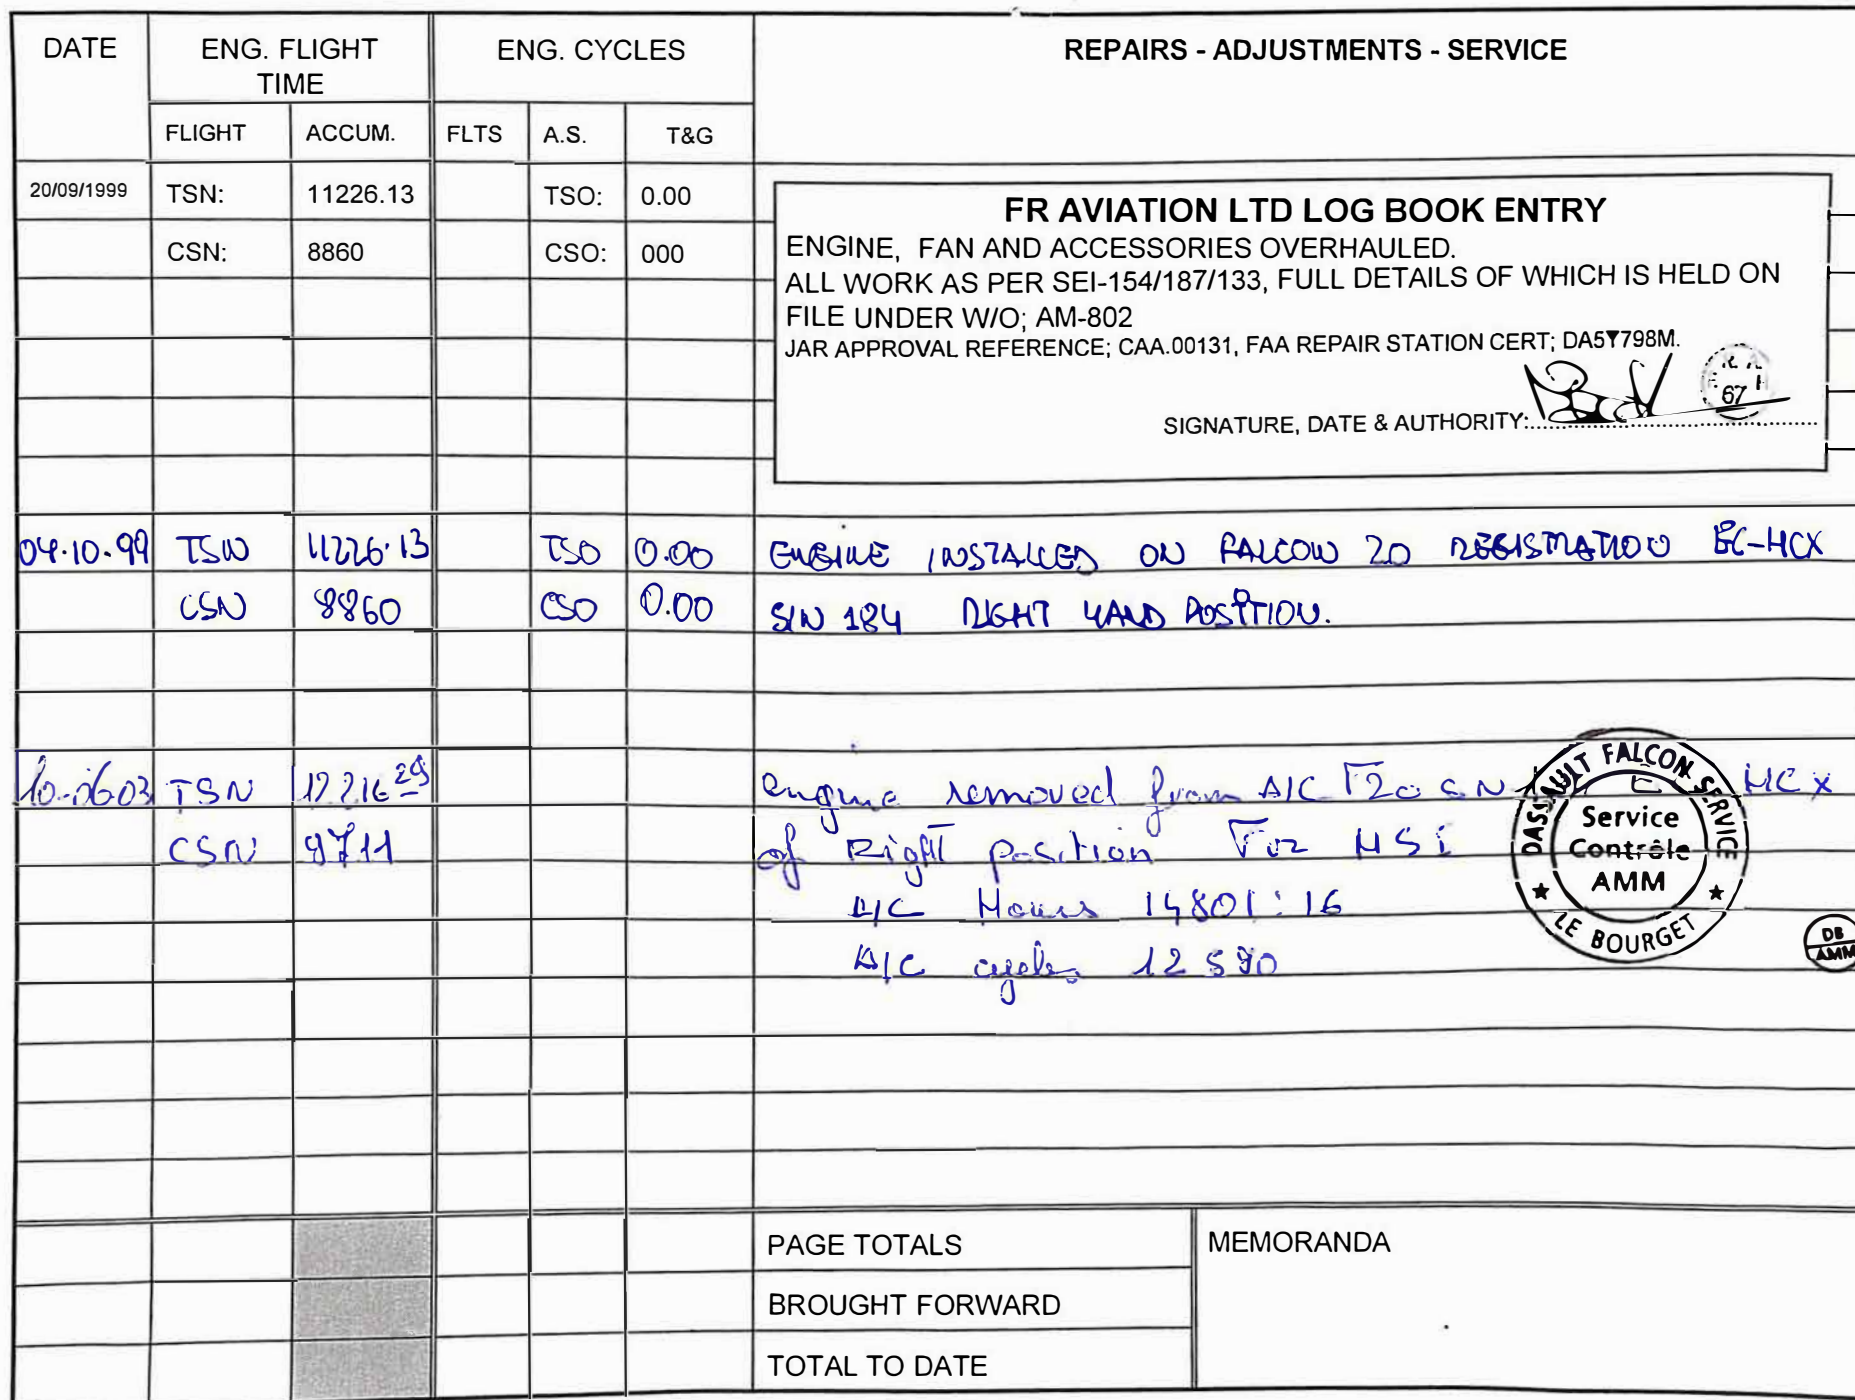 DATE ENG. FLIGHT TIME ENG. CYCLES REPAIRS - ADJUSTMENTS - SERVICE
FLIGHT ACCUM. FLTS A.S. T&G
20/09/1999 TSN: 11226.13 TSO: 0.00
CSN: 8860 CSO: 000
FR AVIATION LTD LOG BOOK ENTRY
ENGINE, FAN AND ACCESSORIES OVERHAULED.
ALL WORK AS PER SEI-154/187/133, FULL DETAILS OF WHICH IS HELD ON
FILE UNDER W/O; AM-802
JAR APPROVAL REFERENCE; CAA.00131, FAA REPAIR STATION CERT;
67
SIGNATURE, DATE & AUTHORITY:
04.10.99 TSN 11226.13 TSO 0.00 ENGINE INSTALLED ON FALCON 20 REGISTRATION EC-HCX
CSN 8860 CSO 0.00 S/N 184 RIGHT HAND POSITION.
10-06-03 TSN 12216 29 engine removed from A/C F20 SN HCX
CSN 9711 of Right position For HSI
A/C Hours 14801:16
A/C cycles
DASSAULT FALCON SERVICE
Service
Contrôle
AMM
LE BOURGET
DB
AMM
PAGE TOTALS MEMORANDA
BROUGHT FORWARD
TOTAL TO DATE